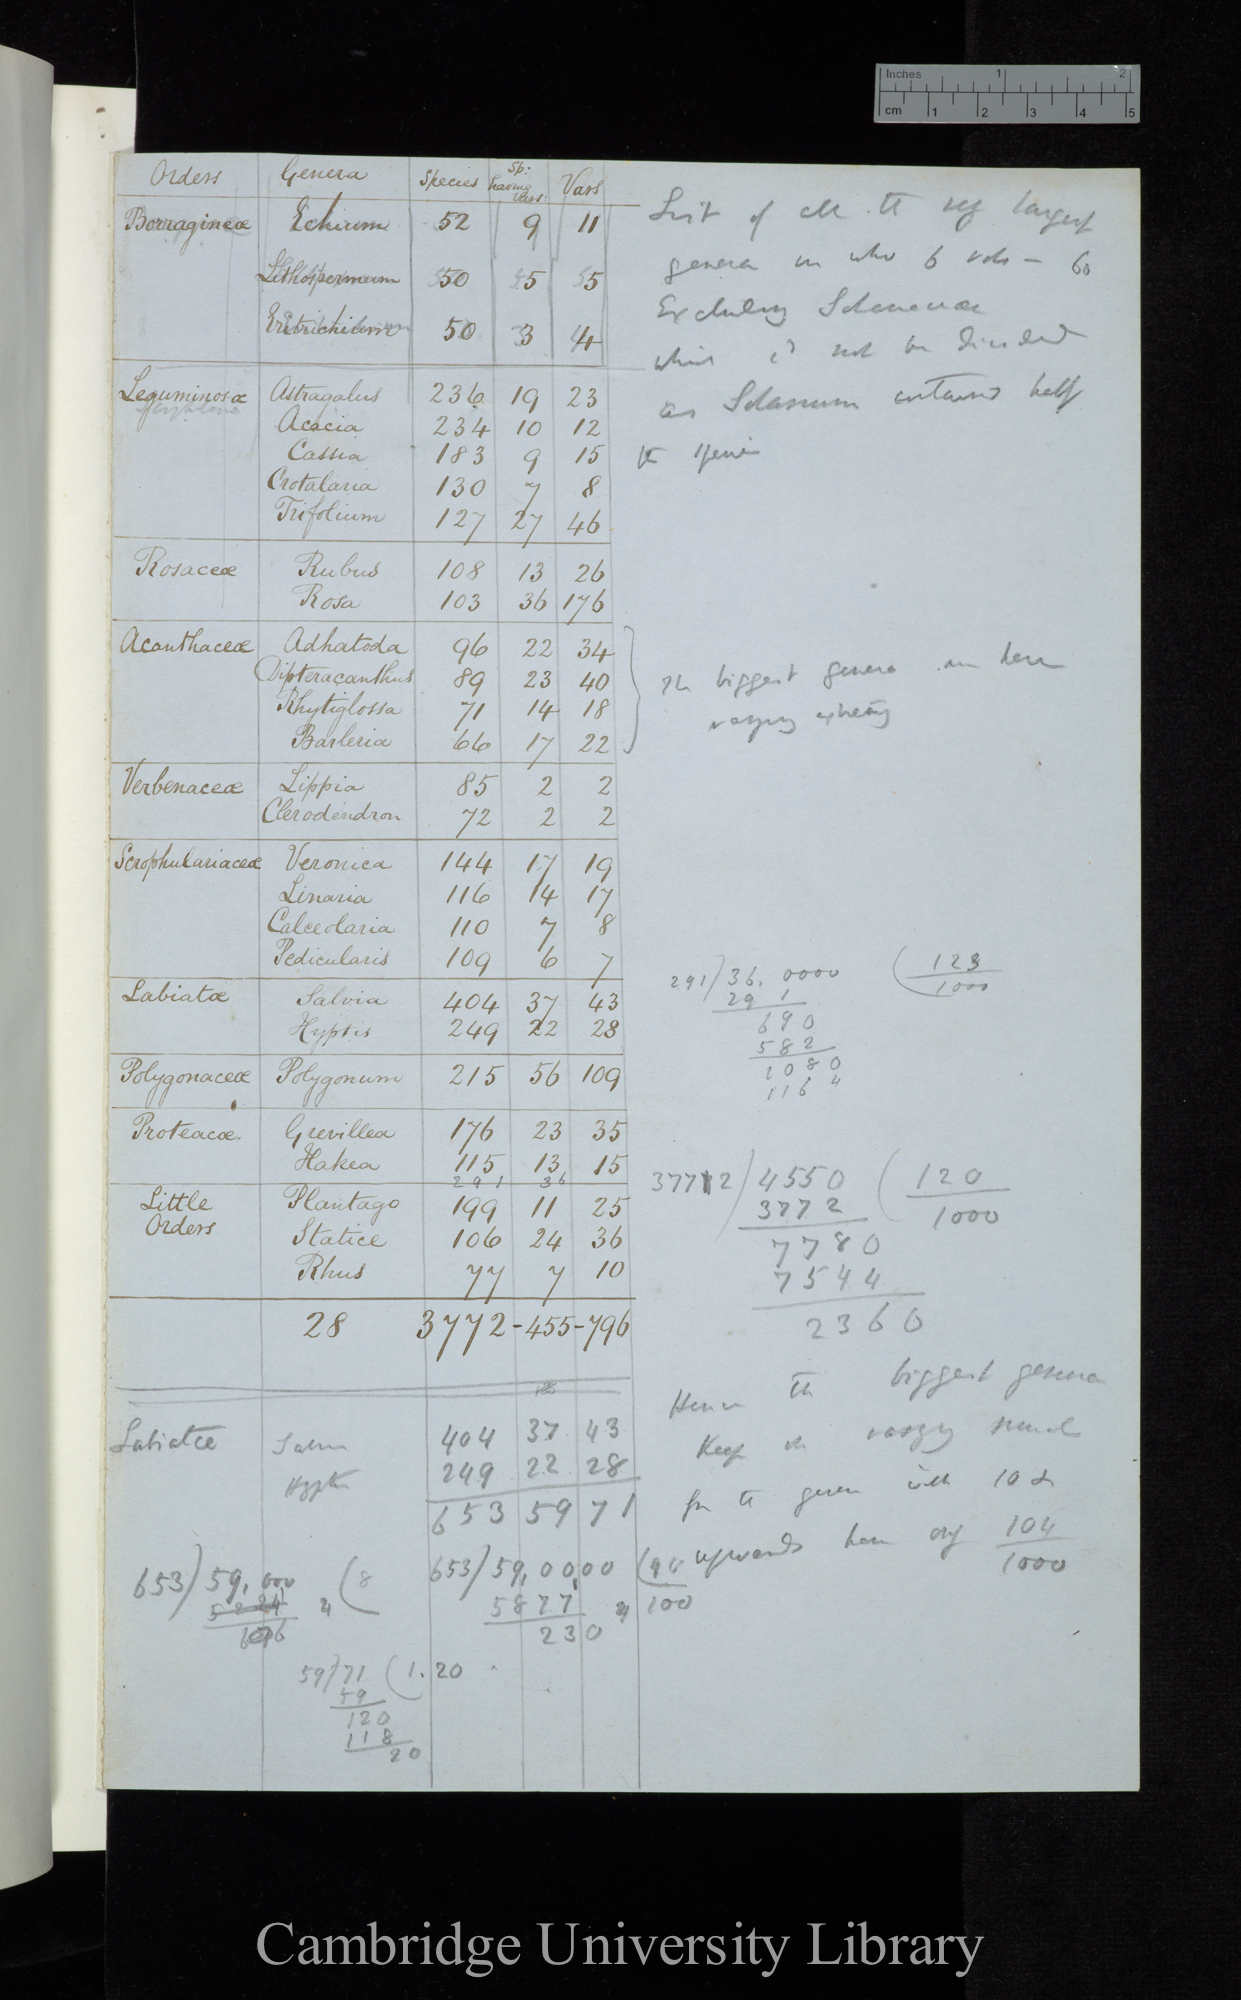 Inches 1 2
cm 1 2 3 4 5
Orders Genera Species Sp: having Vars: Vars
Borragineæ Echium 52 9 11
Lithospermum 50 5 5
Eritrichium 50 3 4
Leguminosæ Astragalus 236 19 23
Acacia 234 10 12
Cassia 183 9 15
Crotalaria 130 7 8
Trifolium 127 27 46
Rosaceæ Rubus 108 13 26
Rosa 103 36 176
Acanthaceæ Adhatoda 96 22 34
Dipteracanthus 89 23 40
Rhytiglossa 71 14 18
Barleria 66 17 22
Verbenaceæ Lippia 85 2 2
Clerodendron 72 2 2
Scrophulariaceæ Veronica 144 17 19
Linaria 116 14 17
Calceolaria 110 7 8
Pedicularis 109 6 7
Labiatæ Salvia 404 37 43
Hyptis 249 22 28
Polygonaceæ Polygonum 215 56 109
Proteacæ. Grevillea 176 23 35
Hakea 115 13 15
291 36
Little Orders Plantago 199 11 25
Statice 106 24 36
Rhus 77 7 10
28 3772-455-796
Labiatæ Salvia 404 37 43
Hyptis 249 22 28
653 59 71
653) 59,000 (8
5224
676
653) 59,0000 (90
5877 100
230
59) 71 (1.20
59
120
118
20
List of all the very largest
genera in whole 6 vols —
Excluding Solanaceæ
which cd not be divided
as Solanum contained half
the species
The biggest genera are here
varying
291) 36,0000 (123
291 1000
690
582
1080
1164
3772) 4550 (120
3772 1000
7780
7544
2360
Hence the biggest genera
Keep on varying
for the genera with 10 &
upwards have only 104
1000
Cambridge University Library